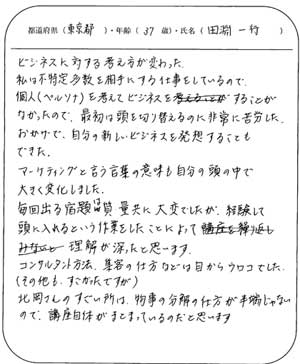 都道府県(東京都)・年齢(37歳)・氏名(田渕 一行)
ビジネスに対する考え方が変わった.
私は不特定多数を相手にする仕事をしているので、
個人(ペルソナ)を考えてビジネスを考えることがすることが
なかったので、最初は頭を切り替えるのに非常に苦労した。
おかげで、自分の新しいビジネスを発想することも
できた.
マーケティングと言う言葉の意味も自分の頭の中で
大きく変化しました.
毎回出る宿題は質量共に大変でしたが、経験して
頭に入れるという作業をしたことによって講座を繰り返し
みないと理解が深まったと思います.
コンサルタント方法、集客の仕方などは目からウロコでした.
(その他も、すごかったですが)
北岡さんのすごい所は、物事の分解の仕方が半端じゃない
ので、講座自体がまとまっているのだと思います